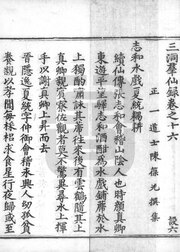 三洞羣仙錄卷之十六
正一道士陳葆光撰集
志和水戲夏統觸柂
續仙傳張志和會稽山陰人也時顏真卿
東遊平望驛志和酒酣為水戲鋪席於水
上獨酌席來往復有雲鶴隨其上
真卿觀者莫不驚異尋於水上揮
手以謝真卿上昇而去
晉隱逸夏統字仲御會稽永興人幼孤貧
養親以孝聞每採梠求食星行夜歸或至